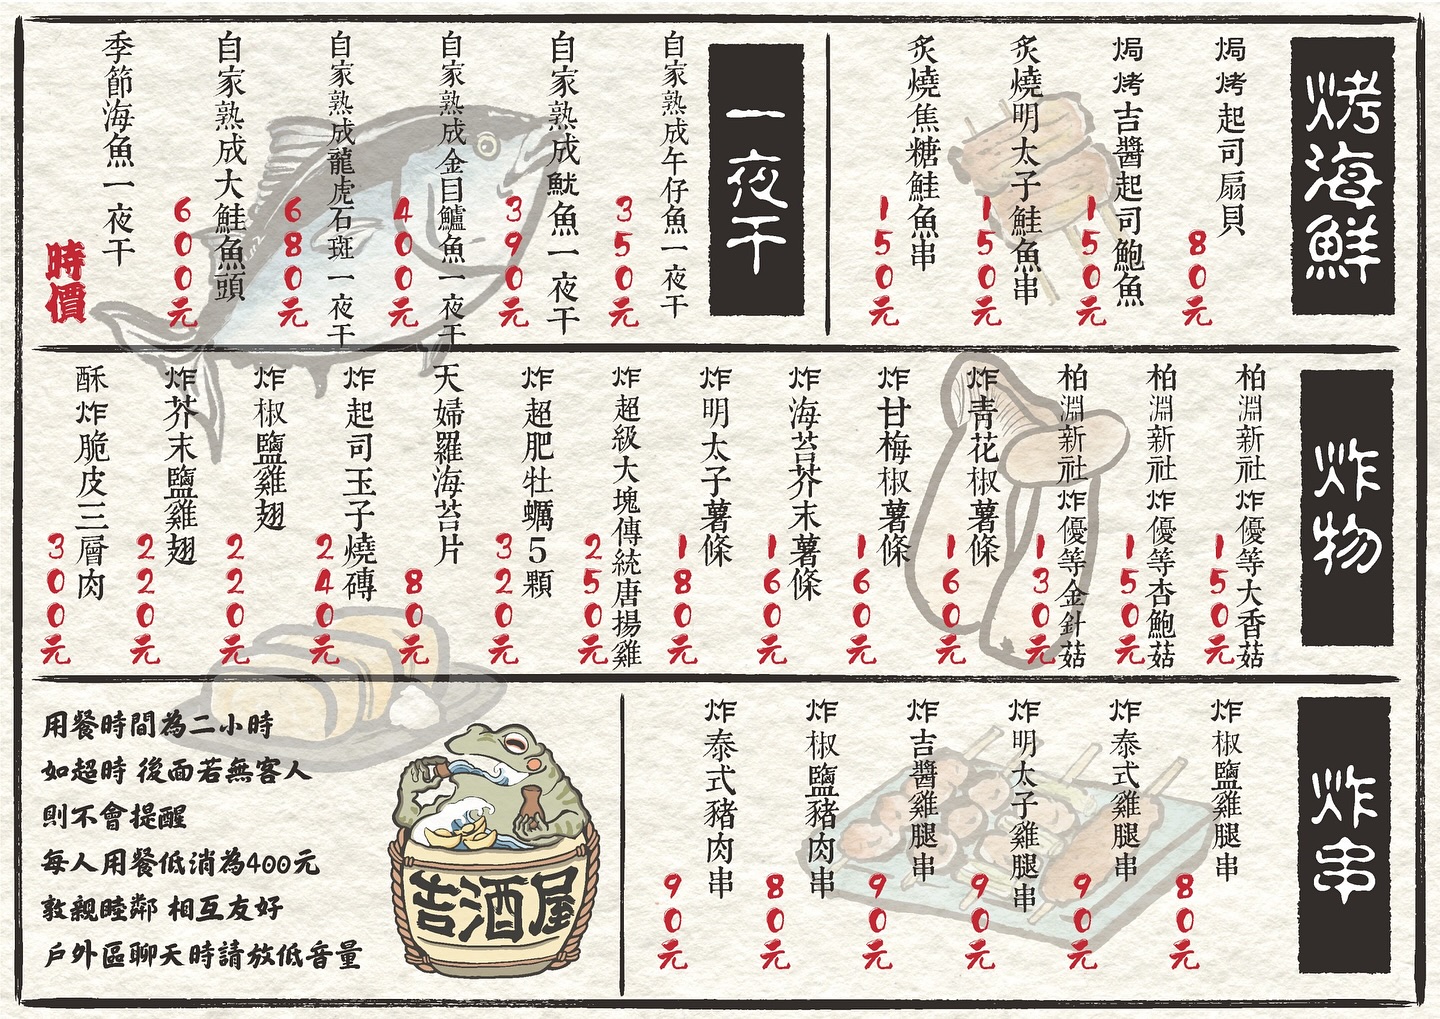 烤海鮮
焗烤起司扇貝
80元
焗烤吉醬起司鮑魚
150元
炙燒明太子鮭魚串
150元
炙燒焦糖鮭魚串
150元
一夜干
自家熟成午仔魚一夜干
350元
自家熟成魷魚一夜干
390元
自家熟成金目鱸魚一夜干
400元
自家熟成龍虎石斑一夜干
680元
自家熟成大鮭魚頭
600元
季節海魚一夜干
時價
炸物
柏淵新社炸優等大香菇
150元
柏淵新社炸優等杏鮑菇
150元
柏淵新社炸優等金針菇
130元
炸青花椒薯條
160元
炸甘梅椒薯條
160元
炸海苔芥末薯條
160元
炸明太子薯條
180元
炸超級大塊傳統唐揚雞
250元
炸超肥牡蠣5顆
320元
天婦羅海苔片
80元
炸起司玉子燒磚
240元
炸椒鹽雞翅
220元
炸芥末鹽雞翅
220元
酥炸脆皮三層肉
300元
炸串
炸椒鹽雞腿串
80元
炸泰式雞腿串
90元
炸明太子雞腿串
90元
炸吉醬雞腿串
90元
炸椒鹽豬肉串
80元
炸泰式豬肉串
90元
用餐時間為二小時
如超時 後面若無客人
則不會提醒
每人用餐低消為400元
敦親睦鄰 相互友好
戶外區聊天時請放低音量
吉酒屋